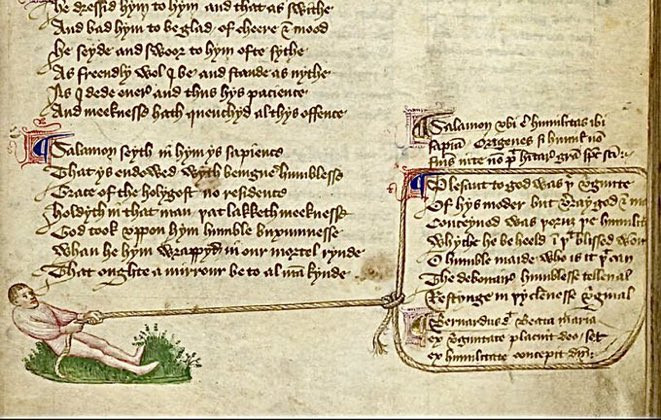 He dressid hym to hym and that as swithe
And bad hym to be glad of cheere & mood
He seyde and swoor to hym ofte sythe
As freendly wol I be and stande as nythe
As I dede over and thus hys pacience
And meeknesse hath quenchyd al thys offence
Salamon seyth in hym ys sapience
That ys endowed wyth benigne humblesse
Grace of the holygost no residence
Holdyth in that man þat lakketh meeknesse
God took uppon hym humble buxumnesse
Whan he hym wrappyd in our mortel rynde
That oughte a mirrour be to al man kynde
Salamon ubi est humilitas ibi
sapia Origenes si humil non
fuis
Plesant to god was þe virginite
Of hys moder but verray god &
Conceyved was þe humilit
Whyche he beheeld in þt blissed
O humble maide who is it þt can
The debonaire humblesse tellen al
Restynge in þy clennesse virginal
Bernardus de Beata maria
ex virginitate placuit deo set
ex humilitate concepit dm